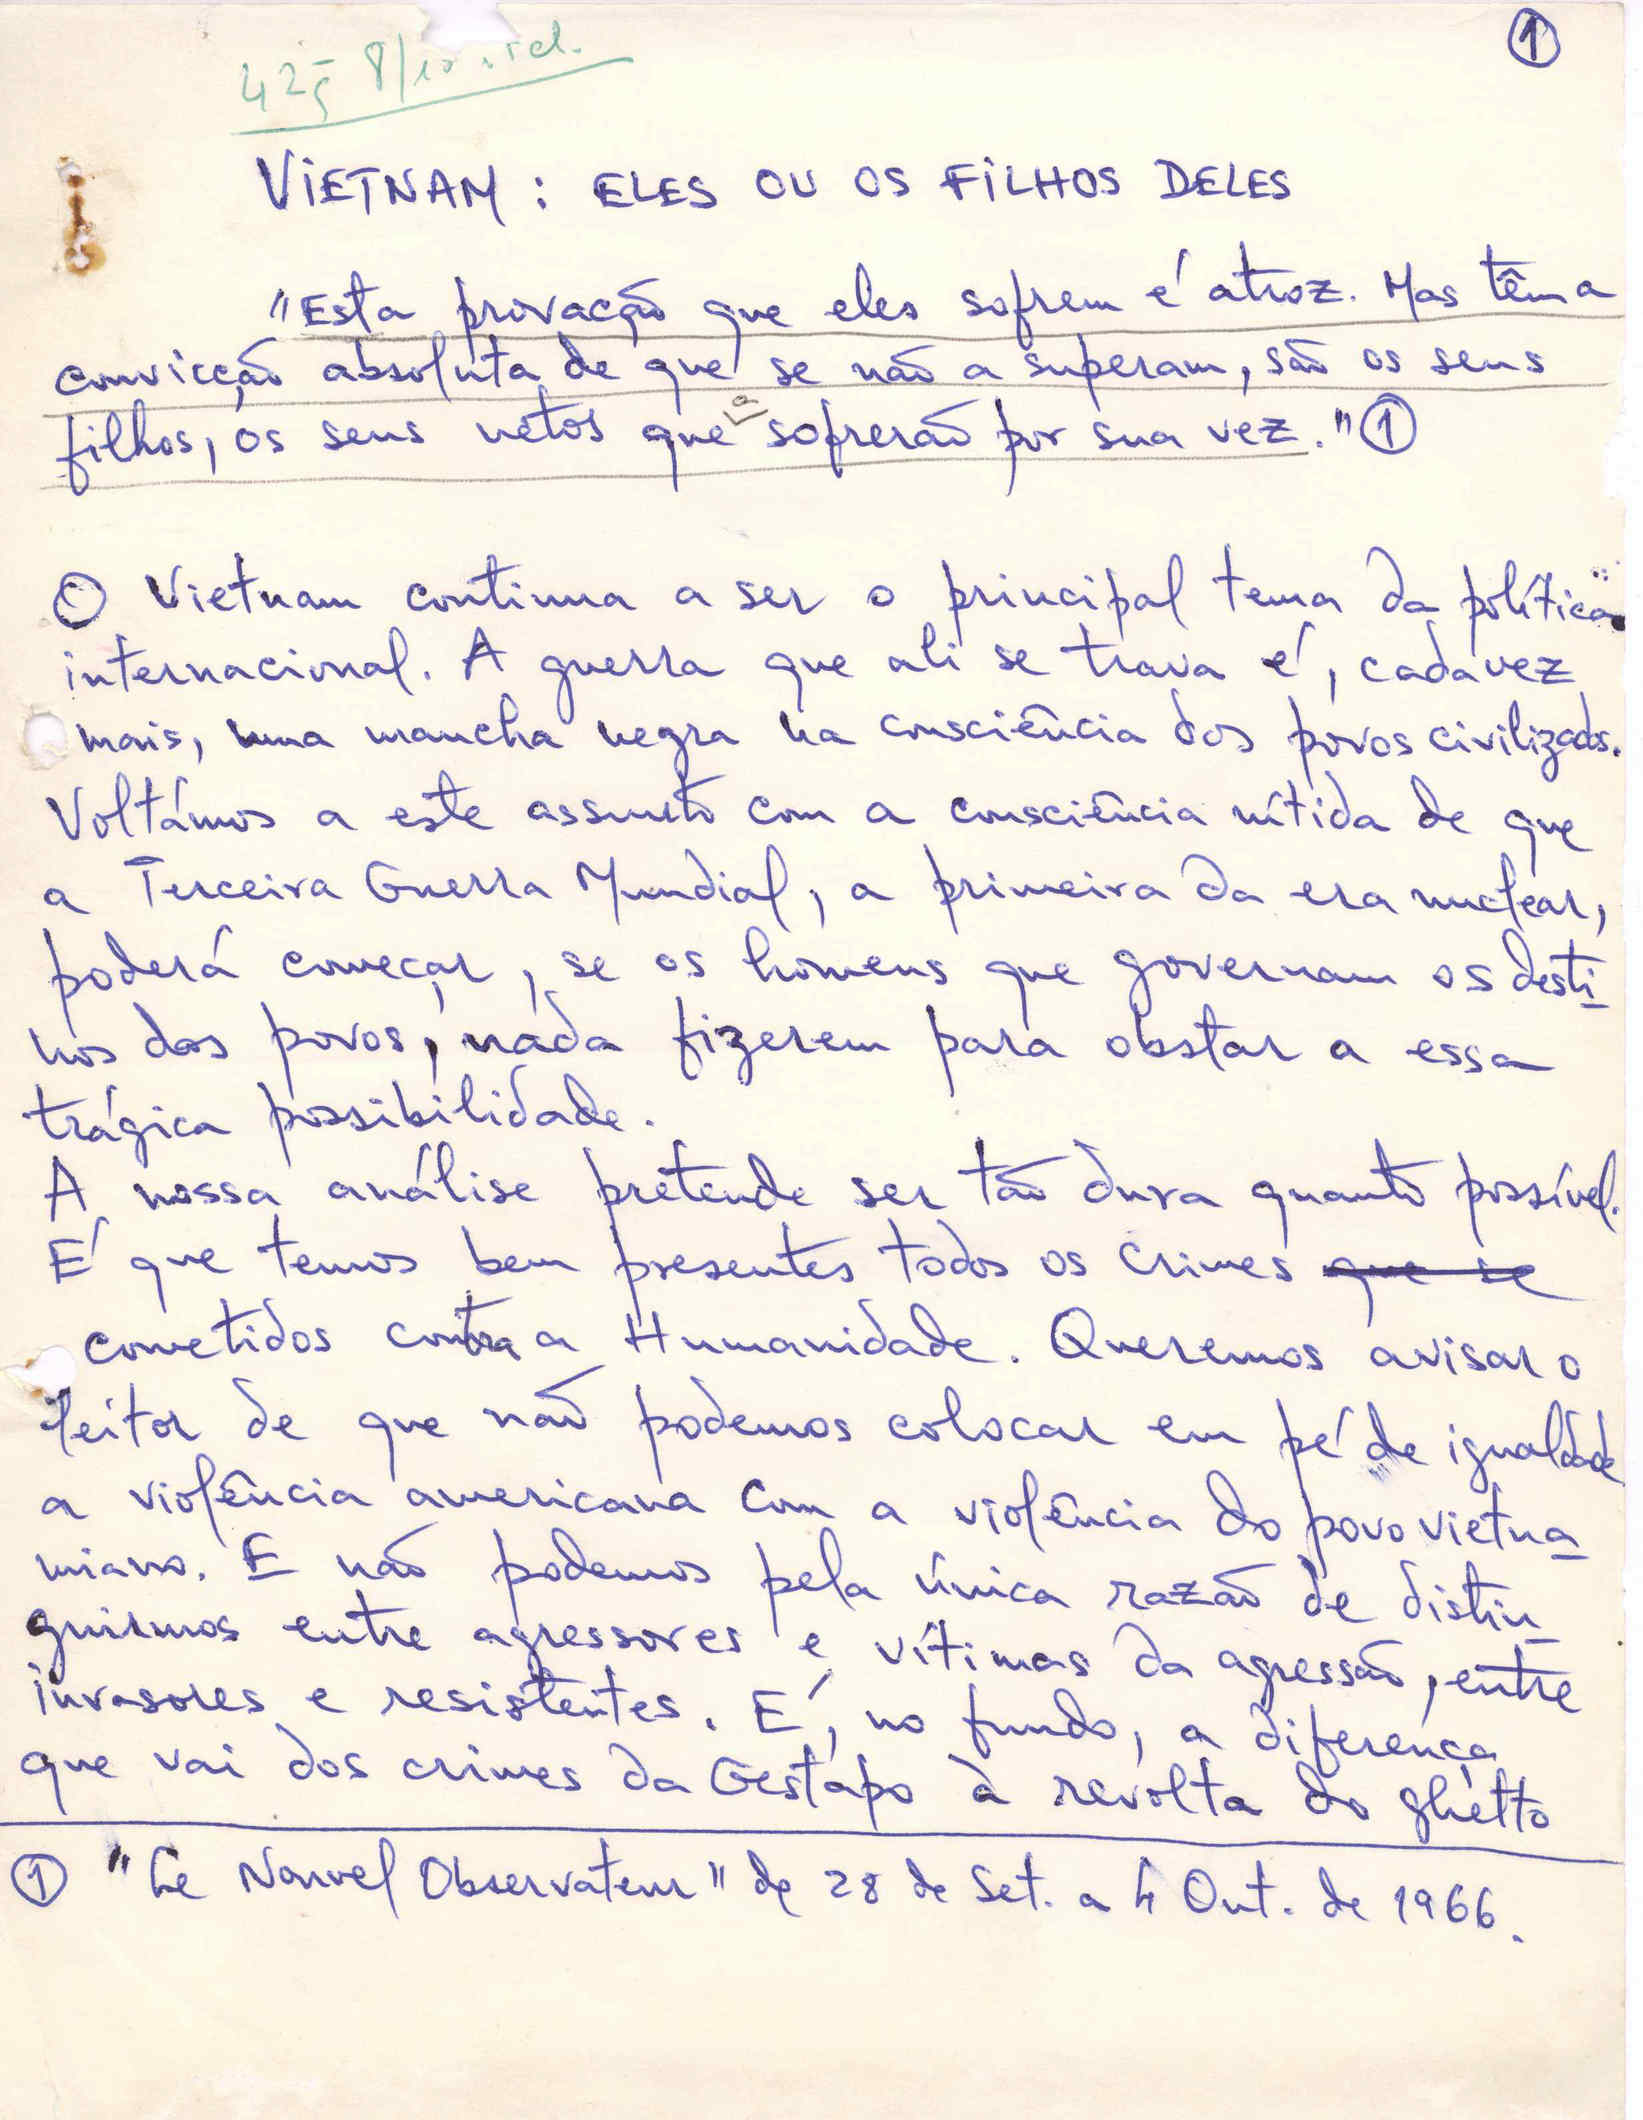 ①
VIETNAM: ELES OU OS FILHOS DELES
"Esta provação que eles sofrem é atroz. Mas têm a
convicção absoluta de que se não a superam, são os seus
filhos, os seus netos que a sofrerão por sua vez." ①
O Vietnam continua a ser o principal tema da política
internacional. A guerra que ali se trava é, cada vez
mais, uma mancha negra na consciência dos povos civilizados.
Voltámos a este assunto com a consciência nítida de que
a Terceira Guerra Mundial, a primeira da era nuclear,
poderá começar, se os homens que governam os desti-
nos dos povos, nada fizerem para obstar a essa
trágica possibilidade.
A nossa análise pretende ser tão dura quanto possível.
É que temos bem presentes todos os crimes que se
cometidos contra a Humanidade. Queremos avisar o
leitor de que não podemos colocar em pé de igualdade
a violência americana com a violência do povo vietna-
miano. E não podemos pela única razão de distin-
guirmos entre agressores e vítimas da agressão, entre
invasores e resistentes. É, no fundo, a diferença
que vai dos crimes da Gestapo à revolta do ghetto
① "Le Nouvel Observateur" de 28 de Set. a 4 Out. de 1966.